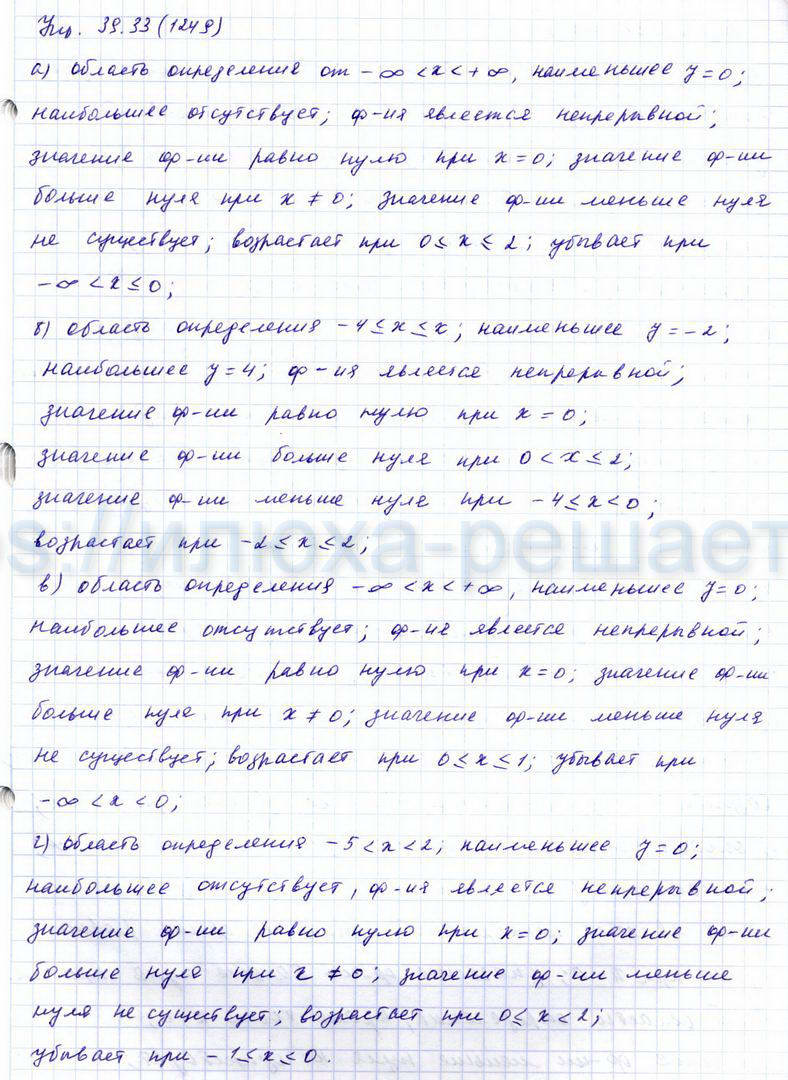 Упр. 39.33 (1249)
а) область определения от -∞ < x < +∞, наименьшее y = 0;
наибольшее отсутствует; ф-ия явлеется непрерывной;
значение ф-ии равно нулю при x = 0; значение ф-ии
больше нуля при x ≠ 0; значение ф-ии меньше нуля
не существует; возрастает при 0 ≤ x ≤ 2; убывает при
-∞ < x ≤ 0;
б) область определения -4 ≤ x ≤ x; наименьшее y = -2;
наибольшее y = 4; ф-ия является непрерывной;
значение ф-ии равно нулю при x = 0;
значение ф-ии больше нуля при 0 < x ≤ 2;
значение ф-ии меньше нуля при -4 ≤ x < 0;
s://илюха-решает
возрастает при -2 ≤ x ≤ 2;
в) область определения -∞ < x < +∞, наименьшее y = 0;
наибольшее отсутствует; ф-ия является непрерывной;
значение ф-ии равно нулю при x = 0; значение ф-ии
больше нуля при x ≠ 0; значение ф-ии меньше нуля
не существует; возрастает при 0 ≤ x ≤ 1; убывает при
-∞ < x < 0;
г) область определения -5 < x < 2; наименьшее y = 0;
наибольшее отсутствует, ф-ия является непрерывной;
значение ф-ии равно нулю при x = 0; значение ф-ии
больше нуля при x ≠ 0; значение ф-ии меньше
нуля не существует; возрастает при 0 ≤ x < 2;
убывает при -1 ≤ x ≤ 0.